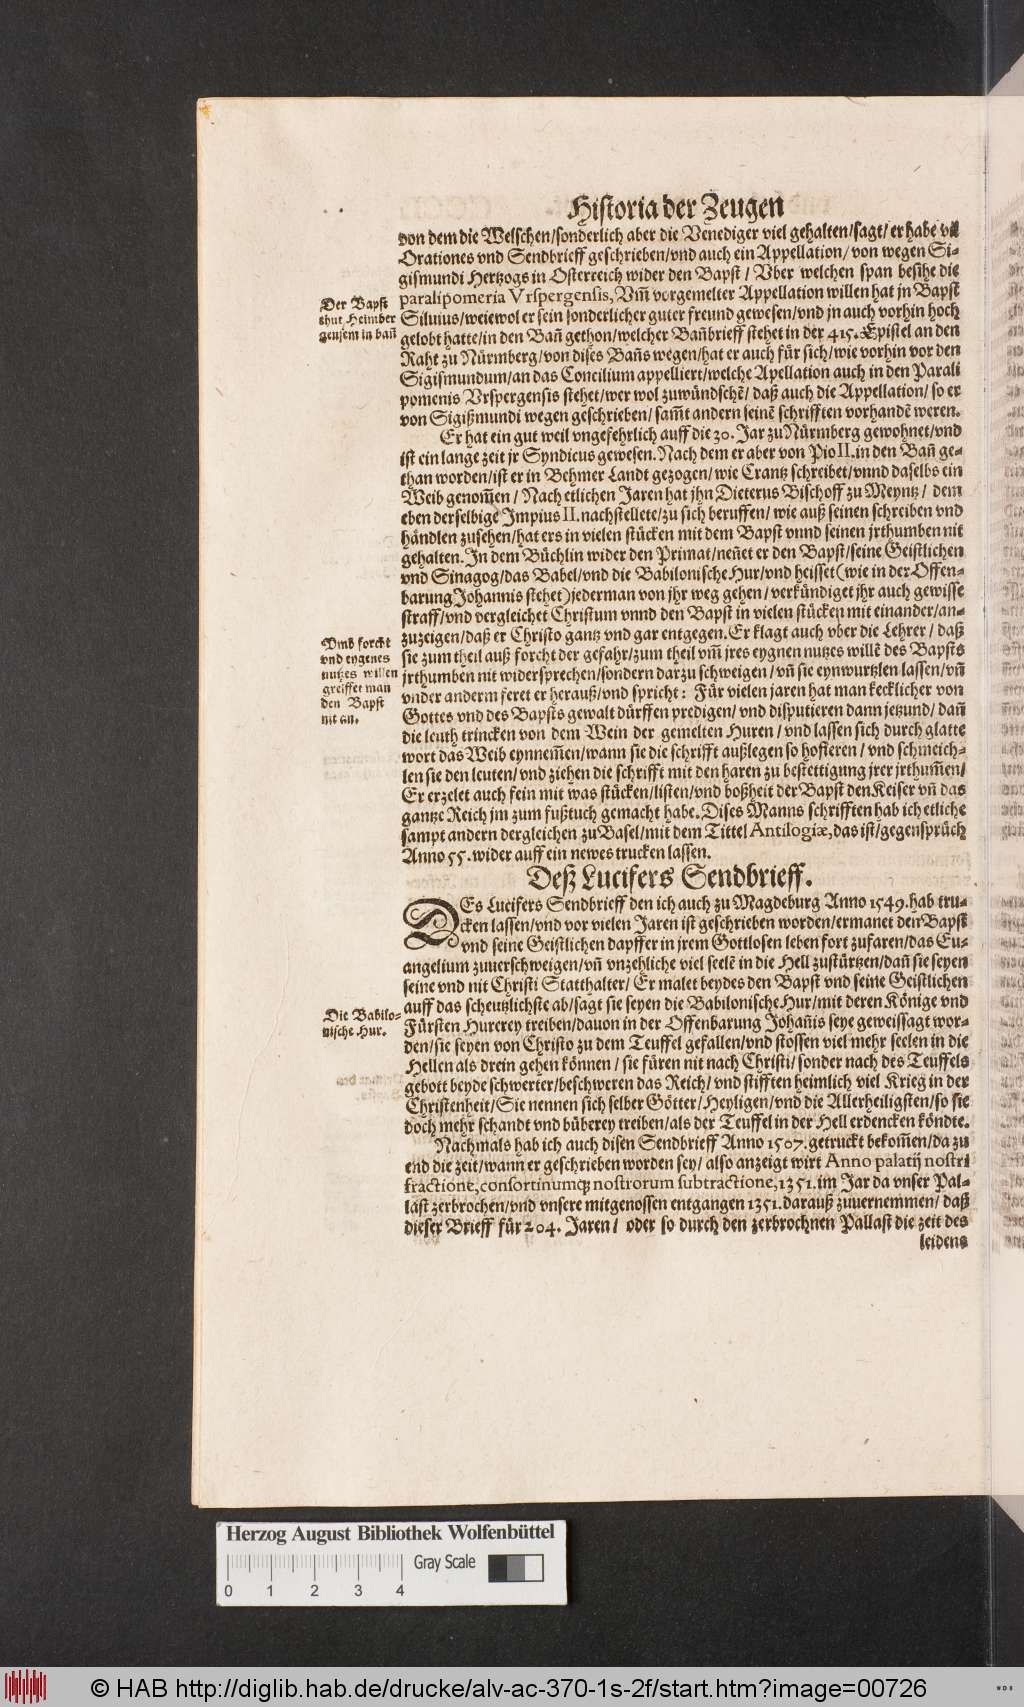 Historia der Zeugen
von dem die Welschen/sonderlich aber die Venediger viel gehalten/sagt/ er habe vil
Orationes vnd Sendbrieff geschrieben/vnd auch ein Appellation/ von wegen Si-
gismundi Hertzogs in Osterreich wider den Bapst / Vber welchen span besihe die
paralipomeria Vrspergensis, Vm̃ vorgemelter Appellation willen hat jn Bapst
Siluius/weiewol er sein sonderlicher guter freund gewesen/vnd jn auch vorhin hoch
gelobt hatte/in den Bañ gethon/welcher Bañbrieff stehet in der 415. Epistel an den
Raht zu Nürmberg/von dises Bañs wegen/hat er auch für sich/wie vorhin vor den
Sigismundum/an das Concilium appelliert/welche Apellation auch in den Parali
pomenis Vrspergensis stehet/wer wol zuwündschẽ/ daß auch die Appellation/ so er
von Sigißmundi wegen geschrieben/ sam̃t andern seinẽ schrifften vorhandẽ weren.
Der Bapst
thut Heimber
geusem in bañ
Er hat ein gut weil vngefehrlich auff die 30. Jar zu Nürmberg gewohnet/vnd
ist ein lange zeit jr Syndicus gewesen. Nach dem er aber von Pio II. in den Bañ ge-
than worden/ist er in Behmer Landt gezogen/ wie Crantz schreibet/vnnd daselbs ein
Weib genom̃en / Nach etlichen Jaren hat jhn Dieterus Bischoff zu Meyntz / dem
eben derselbige Impius II. nachstellete/zu sich beruffen/ wie auß seinen schreiben vnd
händlen zusehen/hat ers in vielen stücken mit dem Bapst vnnd seinen jrthumben nit
gehalten. In dem Büchlin wider den Primat/neñet er den Bapst/seine Geistlichen
vnd Sinagog/das Babel/vnd die Babilonische Hur/vnd heisset (wie in der Offen-
barung Johannis stehet) jederman von jhr weg gehen/ verkündiget jhr auch gewisse
straff/vnd vergleichet Christum vnnd den Bapst in vielen stücken mit einander/an-
zuzeigen/daß er Christo gantz vnd gar entgegen. Er klagt auch vber die Lehrer / daß
sie zum theil auß forcht der gefahr/zum theil vm̃ jres eygnen nutzes willẽ des Bapsts
jrthumben nit widersprechen/sondern darzu schweigen / vñ sie eynwurtzlen lassen/vñ
vnder anderm feret er herauß/vnd spricht : Für vielen jaren hat man kecklicher von
Gottes vnd des Bapsts gewalt dürffen predigen/ vnd disputieren dann jetzund/ dañ
die leuth trincken von dem Wein der gemelten Huren / vnd lassen sich durch glatte
wort das Weib eynnem̃en/wann sie die schrifft außlegen so hofieren / vnd schmeich-
len sie den leuten/ vnd ziehen die schrifft mit den haren zu bestettigung jrer jrthum̃en/
Er erzelet auch fein mit was stücken/listen/vnd boßheit der Bapst den Keiser vñ das
gantze Reich jm zum fußtuch gemacht habe. Dises Manns schrifften hab ich etliche
sampt andern dergleichen zu Basel/mit dem Tittel Antilogiæ, das ist/gegensprüch
Anno 55. wider auff ein newes trucken lassen.
Vmb forcht
vnd eygenes
nutzes willen
greiffet man
den Bapst
nit an.
Deß Lucifers Sendbrieff.
DEs Lucifers Sendbrieff den ich auch zu Magdeburg Anno 1549. hab tru-
cken lassen/vnd vor vielen Jaren ist geschrieben worden/ermanet den Bapst
vnd seine Geistlichen dapffer in jrem Gottlosen leben fort zufaren/das Eu-
angelium zuuerschweigen/vñ vnzehliche viel seelẽ in die Hell zustürtzen/dañ sie seyen
seine vnd nit Christi Statthalter/ Er malet beydes den Bapst vnd seine Geistlichen
auff das scheutzlichste ab/sagt sie seyen die Babilonische Hur/mit deren Könige vnd
Fürsten Hurerey treiben/dauon in der Offenbarung Johañis seye geweissagt wor-
den/sie seyen von Christo zu dem Teuffel gefallen/vnd stossen viel mehr seelen in die
Hellen als drein gehen können / sie füren nit nach Christi/ sonder nach des Teuffels
gebott beyde schwerter/beschweren das Reich/ vnd stifften heimlich viel Krieg in der
Christenheit/Sie nennen sich selber Götter/Heyligen/vnd die Allerheiligsten/so sie
doch mehr schandt vnd büberey treiben/als der Teuffel in der Hell erdencken köndte.
Die Babilo-
nische Hur.
Nachmals hab ich auch disen Sendbrieff Anno 1507. getruckt bekom̃en/da zu
end die zeit/wann er geschrieben worden sey/ also anzeigt wirt Anno palatij nostri
fractione, consortinumq; nostrorum subtractione, 1351. im Jar da vnser Pal-
last zerbrochen/vnd vnsere mitgenossen entgangen 1351. darauß zuuernemmen/ daß
dieser Brieff für 204. Jaren / oder so durch den zerbrochnen Pallast die zeit des
leidens
Herzog August Bibliothek Wolfenbüttel
Gray Scale
0 1 2 3 4
© HAB http://diglib.hab.de/drucke/alv-ac-370-1s-2f/start.htm?image=00726